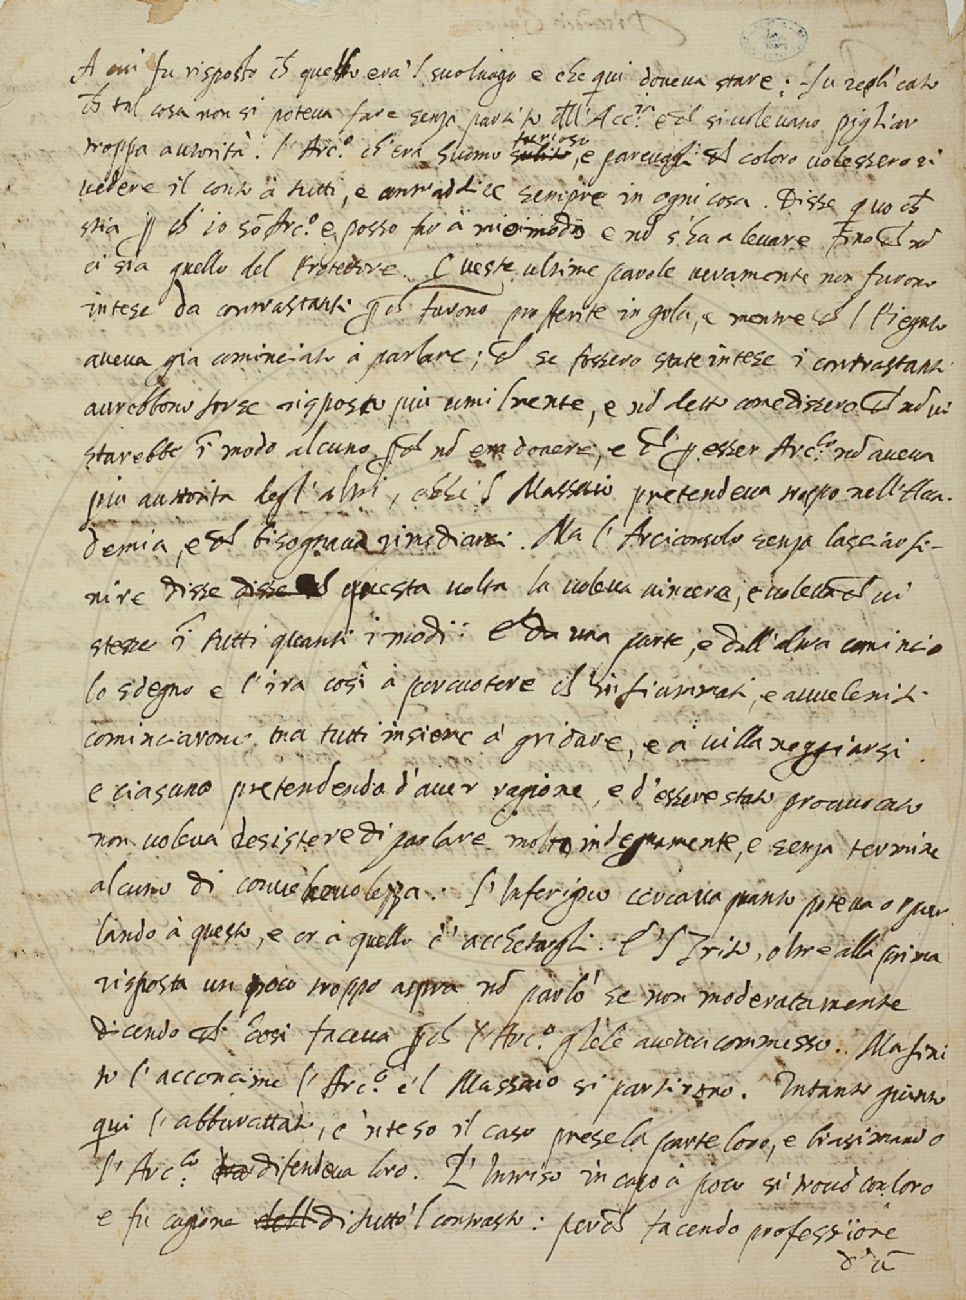 A cui fu risposto ch questo era 'l suo luogo e che qui doveva stare: fu replicato
ch tal cosa non si poteva fare senza partito dell' Acc. e ch si volevano pigliar
troppa autorità. l' Arc.º ch' era huomo subito furioso, e parvegli ch coloro volessero ri
vedere il conto à tutti, e contraddice sempre in ogni cosa. Disse quo ch
stia p ch' io so Arc.º e posso far à mio modo e nō s' ha a levare fino ch nō
ci sia quello del Protettore. Queste ultime parole veramente non furono
intese da contrastanti pch furono profferite in gola, e mentre ch l' Riegnto
aveva già cominciato à parlare; ch se fossero state intese i contrastanti
avrebbono forse risposto più umilmente, e nō detto come dissero ch nō vi
starebbe ī modo alcuno pch nō era dovere, e ch p esser Arc.º nō aveva
più autorità degl' altri, e ch' l Massaio pretendeva troppo nell' Acca-
demia, e ch bisognava rimediarci. Ma l' Arciconsolo senza lasciar fi-
nire disse disse ch questa volta la voleva vincere, e voleva ch vi
stesse ī tutti quanti i modi: E da una parte, e dall' altra cominciò
lo sdegno e l' ira così à percuotere ch' infiammati, e avveleniti
cominciarono tra tutti insieme à gridare, e à villaneggiarsi.
e ciascuno pretendendo d' aver ragione, e d' essere stato provocato
non voleva desistere di parlare molto indegnamente, e senza termine
alcuno di convenevolezza. L' Inferigno cercava quanto poteva or par
lando à questo, e or à quello d' acchetargli. E 'l Trito, oltre alla prima
risposta un poco troppo aspra nō parlò se non moderatamente
dicendo ch così faceva pch l' Arc.º gliele aveva commesso. Ma fini
to l' acconcime l' Arc.º e 'l Massaio si partirono. Intanto giunto
qui l' abburattato, e 'nteso il caso prese la parte loro, e biasimando
l' Arc.º difendeva loro. L' Inriso in capo à poco si trovò con loro
e fu cagione dell di tutto 'l contrasto: perch facendo professione
d' ū